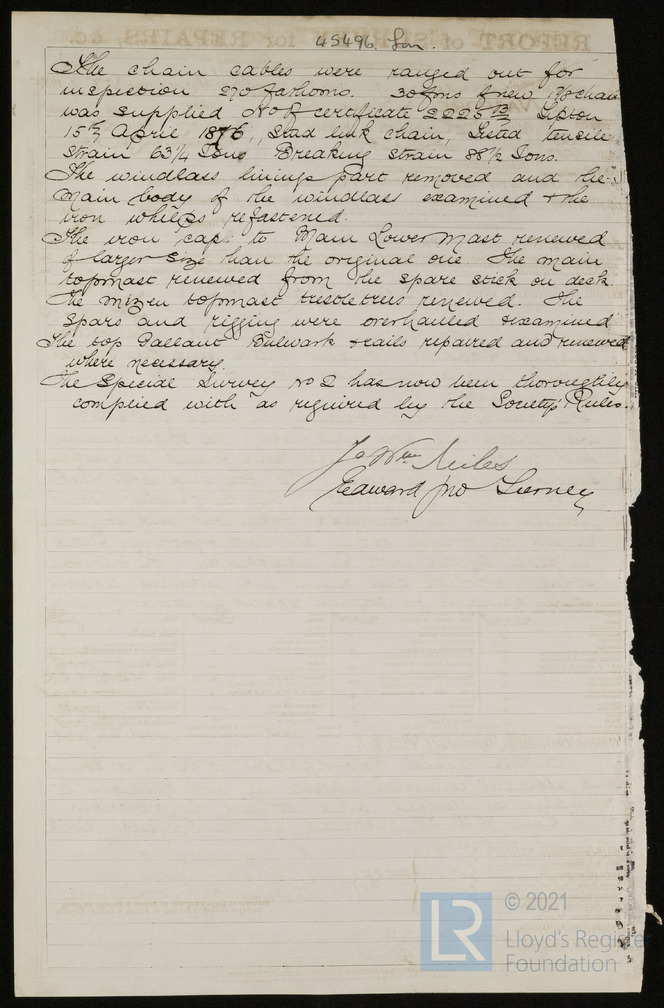 45496 Lon.
The chain cables were ranged out for
inspection 270 fathoms. 30 fms of new 1 7/8 chain
was supplied No of certificate 2225 Tipton
15th April 1876, Stud link chain, Tested tensile
strain 63 1/4 Tons Breaking strain 88 1/2 Tons.
The windlass linings part removed and the
main body of the windlass examined & the
iron whelps refastened.
The iron cap to Main Lower Mast renewed
of larger size than the original one. The main
topmast renewed from the spare stick on deck
The mizen topmast trestletrees renewed. The
spars and rigging were overhauled & examined
The top Gallant Bulwark & rails repaired and renewed
where necessary.
The Special Survey No 2 has now been thoroughly
complied with as required by the Society's Rules.
Wm Miles
Edward Jno Tierney
© 2021
LR
Lloyd's Register
Foundation